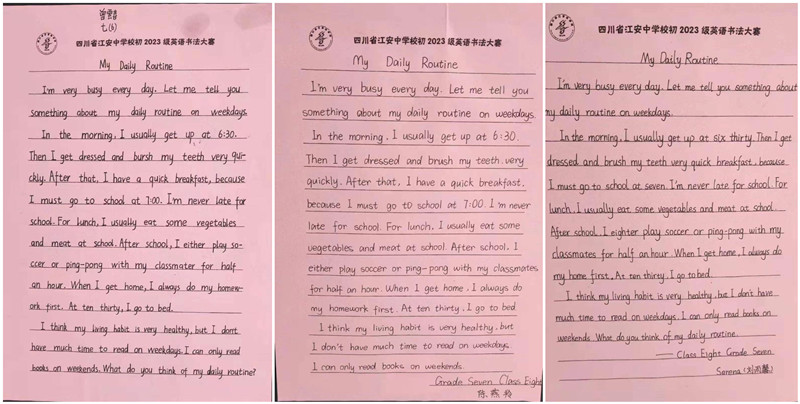 曾雪
七(6)
四川省江安中学校初2023级英语书法大赛
My Daily Routine
I'm very busy every day. Let me tell you
something about my daily routine on weekdays.
In the morning, I usually get up at 6:30.
Then I get dressed and bursh my teeth very qui-
ckly. After that, I have a quick breakfast, because
I must go to school at 7:00. I'm never late for
school. For lunch, I usually eat some vegetables
and meat at school. After school, I either play so-
ccer or ping-pong with my classmater for half
an hour. When I get home, I always do my homew-
ork first. At ten thirty, I go to bed.
I think my living habit is very healthy, but I dont
have much time to read on weekdays. I can only read
books on weekends. What do you think of my daily routine?
四川省江安中学校初2023级英语书法大赛
My Daily Routine
I'm very busy every day. Let me tell you
something about my daily routine on weekdays.
In the morning, I usually get up at 6:30.
Then I get dressed and brush my teeth very
quickly. After that, I have a quick breakfast,
because I must go to school at 7:00 I'm never
late for school. For lunch, I usually eat some
vegetables and meat at school. After school, I
either play soccer or ping-pong with my classmates
for half an hour. When I get home, I always do
my homework first. At ten thirty, I go to bed
I think my living habit is very healthy, but
I don't have much time to read on weekdays
I can only read books on weekends.
Grade Seven Class Eight
陈燕玲
四川省江安中学校初2023级英语书法大赛
My Daily Routine
I'm very busy every day. Let me tell you something about
my daily routine on weekdays.
In the morning, I usually get up at six thirty. Then I get
dressed and brush my teeth very quick breakfast, because
I must go to school at seven. I'm never late for school. For
lunch, I usually eat some vegetables and meat at school.
After school. I eighter play soccer or ping-pong with my
classmates for half an hour. When I get home, I always do
my home first. At ten thirty, I go to bed.
I think my living habit is very healthy, but I don't have
much time to read on weekdays. I can only read books on
weekends. What do you think of my daily routine
—— Class Eight Grade Seven
Serena